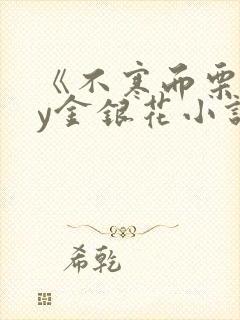 《不寒而栗
y金银花小
希乾